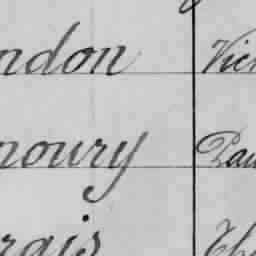 ndon Vic
noury Pau
rais Th